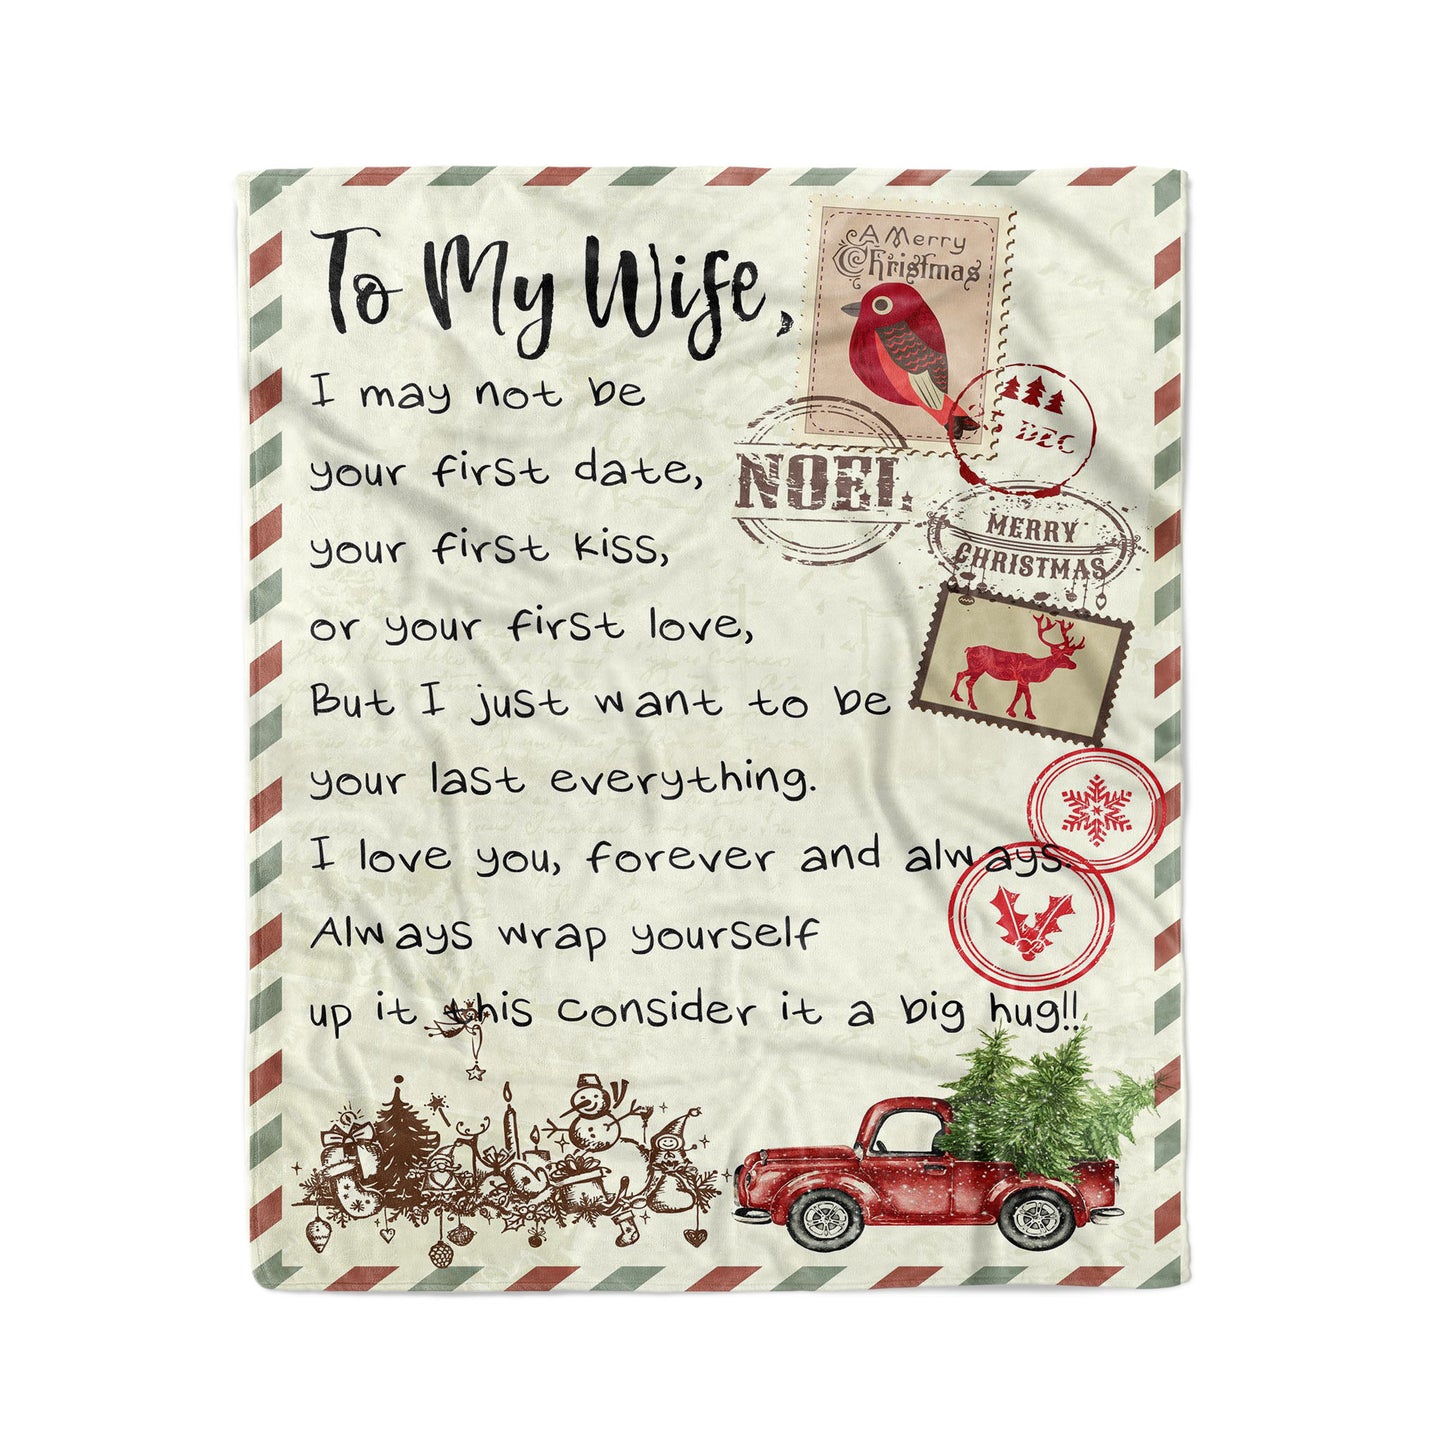 To My Wife,
A Merry
Christmas
I may not be
DEC
your first date,
NOEL
your first kiss,
MERRY
CHRISTMAS
or your first love,
But I just want to be
your last everything.
I love you, forever and always.
Always wrap yourself
up it this consider it a big hug!!